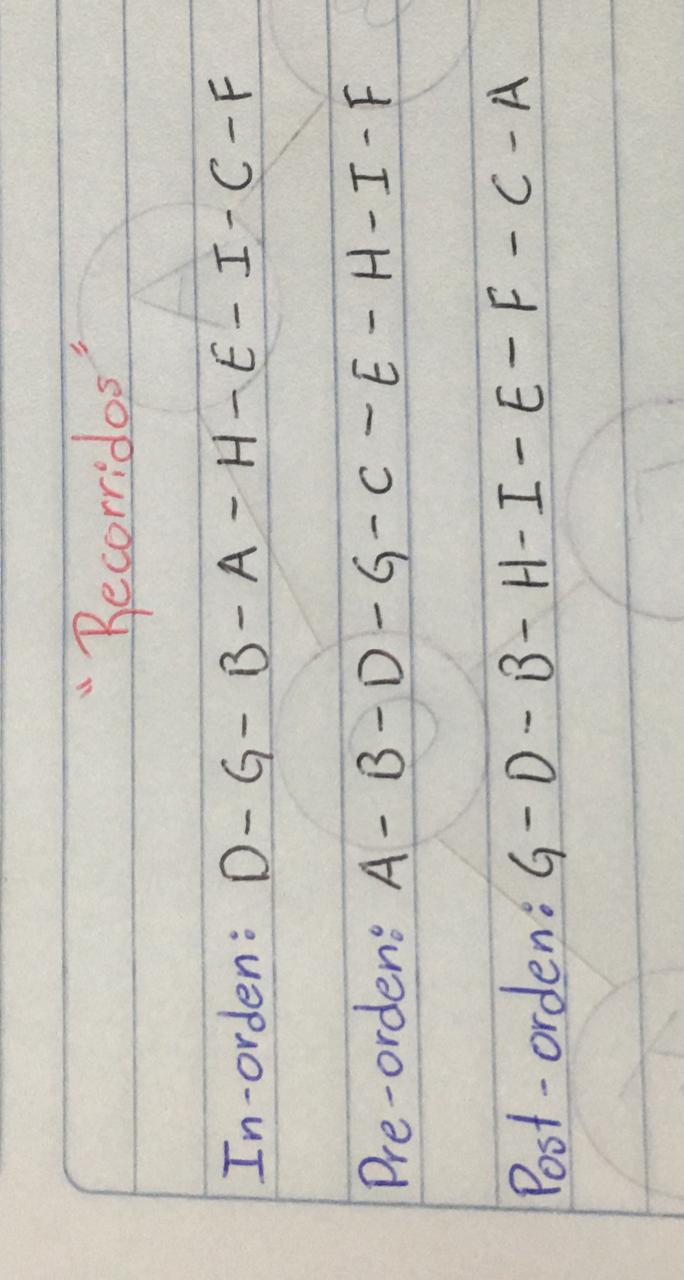 "Recorridos"
In-orden: D-G-B-A-H-E-I-C-F
Pre-orden: A-B-D-G-C-E-H-I-F
Post-orden: G-D-B-H-I-E-F-C-A